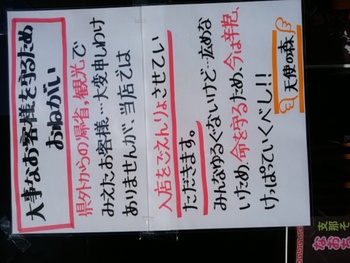 大事なお客様を守るため
おねがい
県外からの帰省,観光で
みえたお客様…大変申しわけ
ありませんが、当店では
入店をごえんりょさせてい
ただきます。
みんなゆるぐないけど…広めな
いため、命を守るため、今は辛抱、
けっぱっていくべし!!
天使の森
支那そ